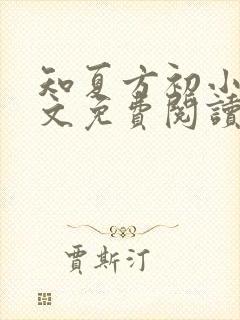 知夏方初小
文免費閱讀
賈斯汀